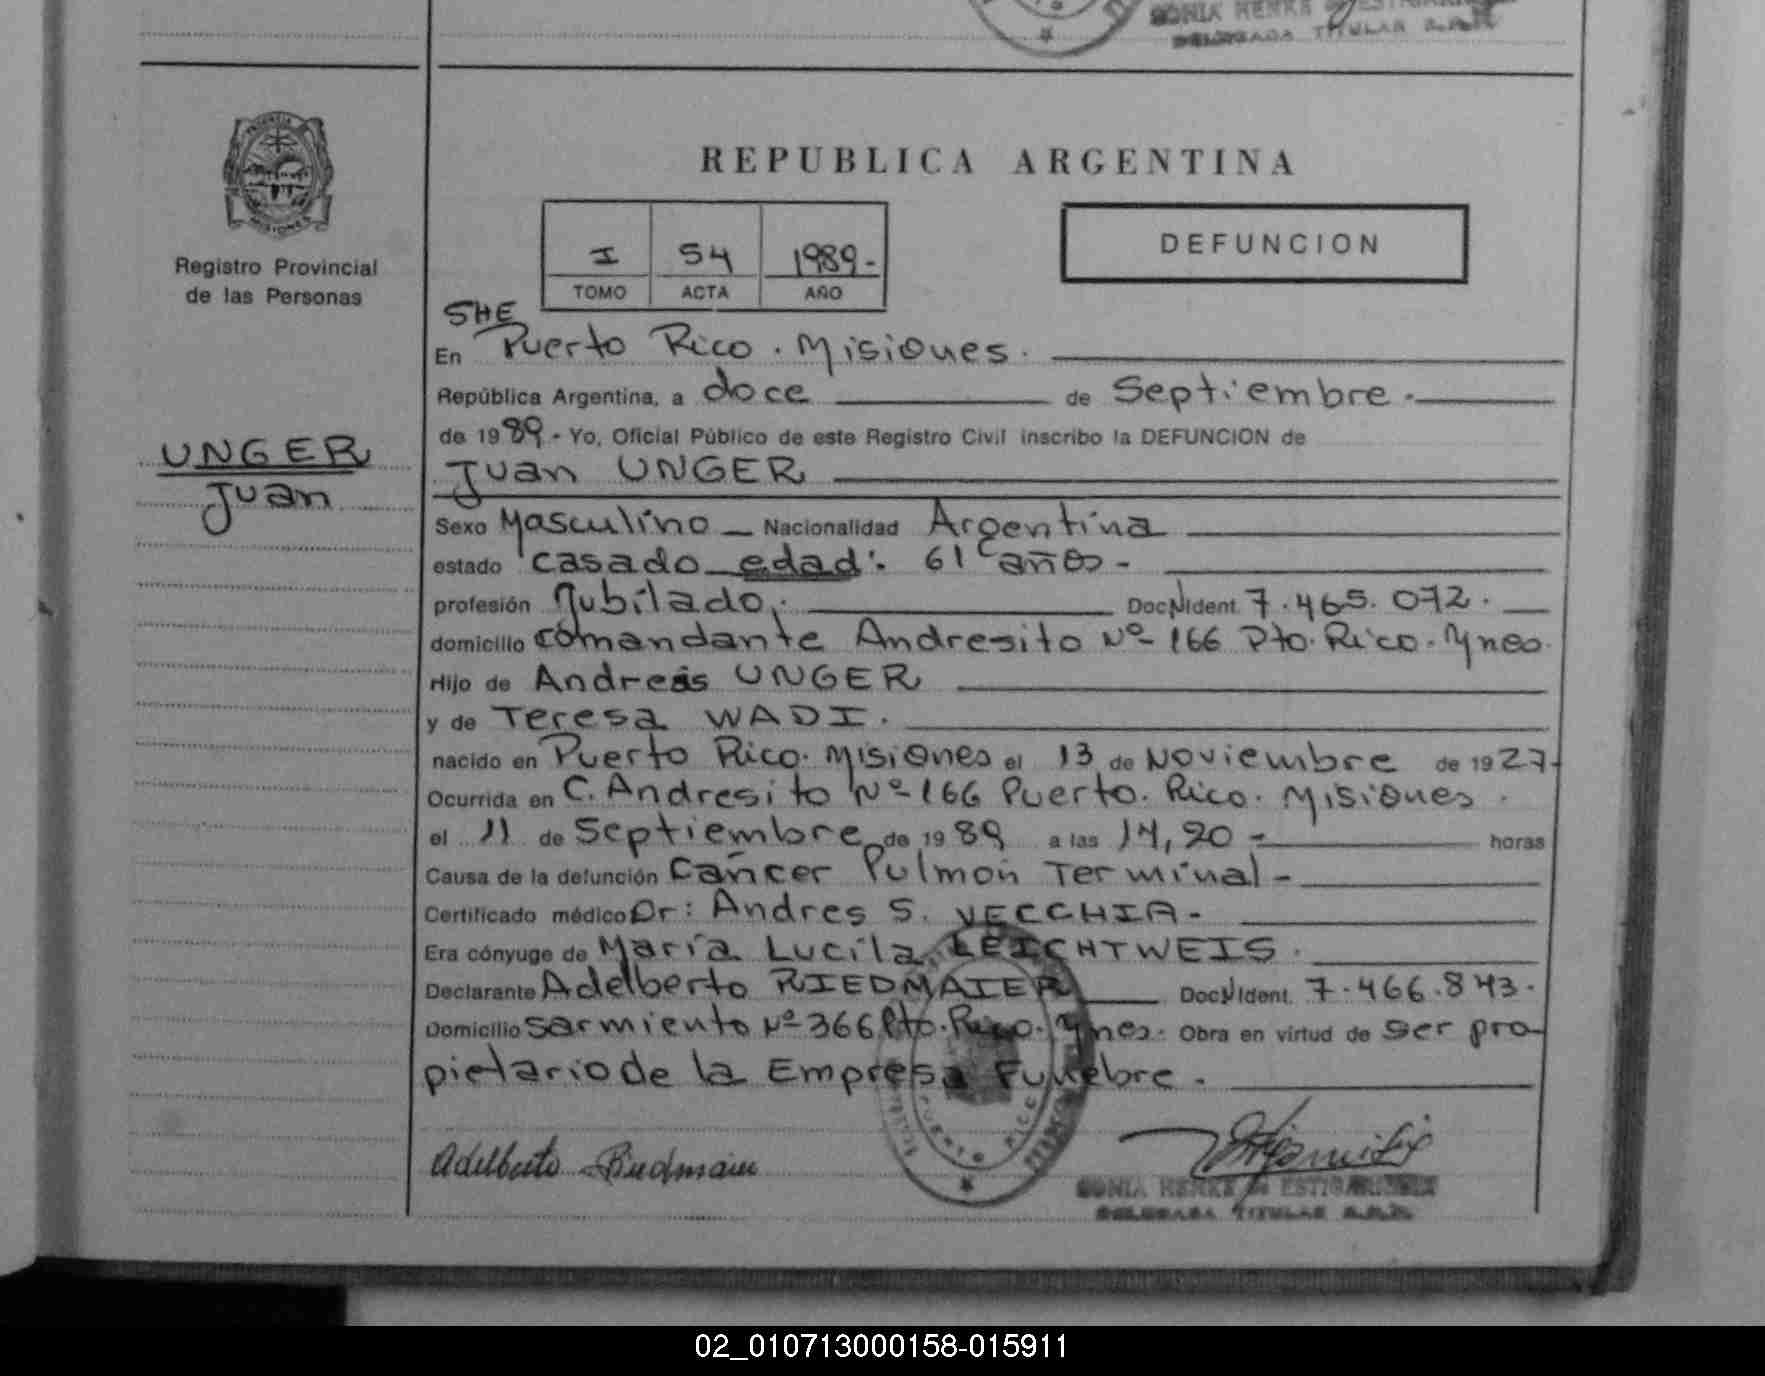 SONIA HENKE
DELEGADA TITULAR
PROVINCIA
MISIONES
Registro Provincial
de las Personas
UNGER
Juan
REPUBLICA ARGENTINA
I 54 1989-
TOMO ACTA AÑO
DEFUNCION
SHE
En Puerto Rico. Misiones.
República Argentina, a doce de Septiembre.
de 1989.- Yo, Oficial Público de este Registro Civil inscribo la DEFUNCION de
Juan UNGER
Sexo Masculino Nacionalidad Argentina
estado casado edad: 61 años-
profesión Jubilado. Doc. Ident. 7.465.072.
domicilio comandante Andresito Nº 166 Pto. Rico. Mnes.
Hijo de Andrés UNGER
y de Teresa WADI.
nacido en Puerto Rico. Misiones el 13 de Noviembre de 1927-
Ocurrida en C. Andresito Nº 166 Puerto. Rico. Misiones.
el 11 de Septiembre de 1989 a las 14,20- horas
Causa de la defunción Cáncer Pulmón Terminal-
Certificado médico Dr: Andres S. VECCHIA-
Era cónyuge de María Lucila LEICHTWEIS.
Declarante Adelberto RIEDMAIER Doc. Ident. 7.466.843.
Domicilio Sarmiento Nº 366 Pto. Rico. Mnes. Obra en virtud de ser pro-
pietario de la Empresa Funebre.
PUERTO RICO
Adelberto Riedmaier
SONIA HENKE de ESTIGARRIBIA
DELEGADA TITULAR
02_010713000158-015911